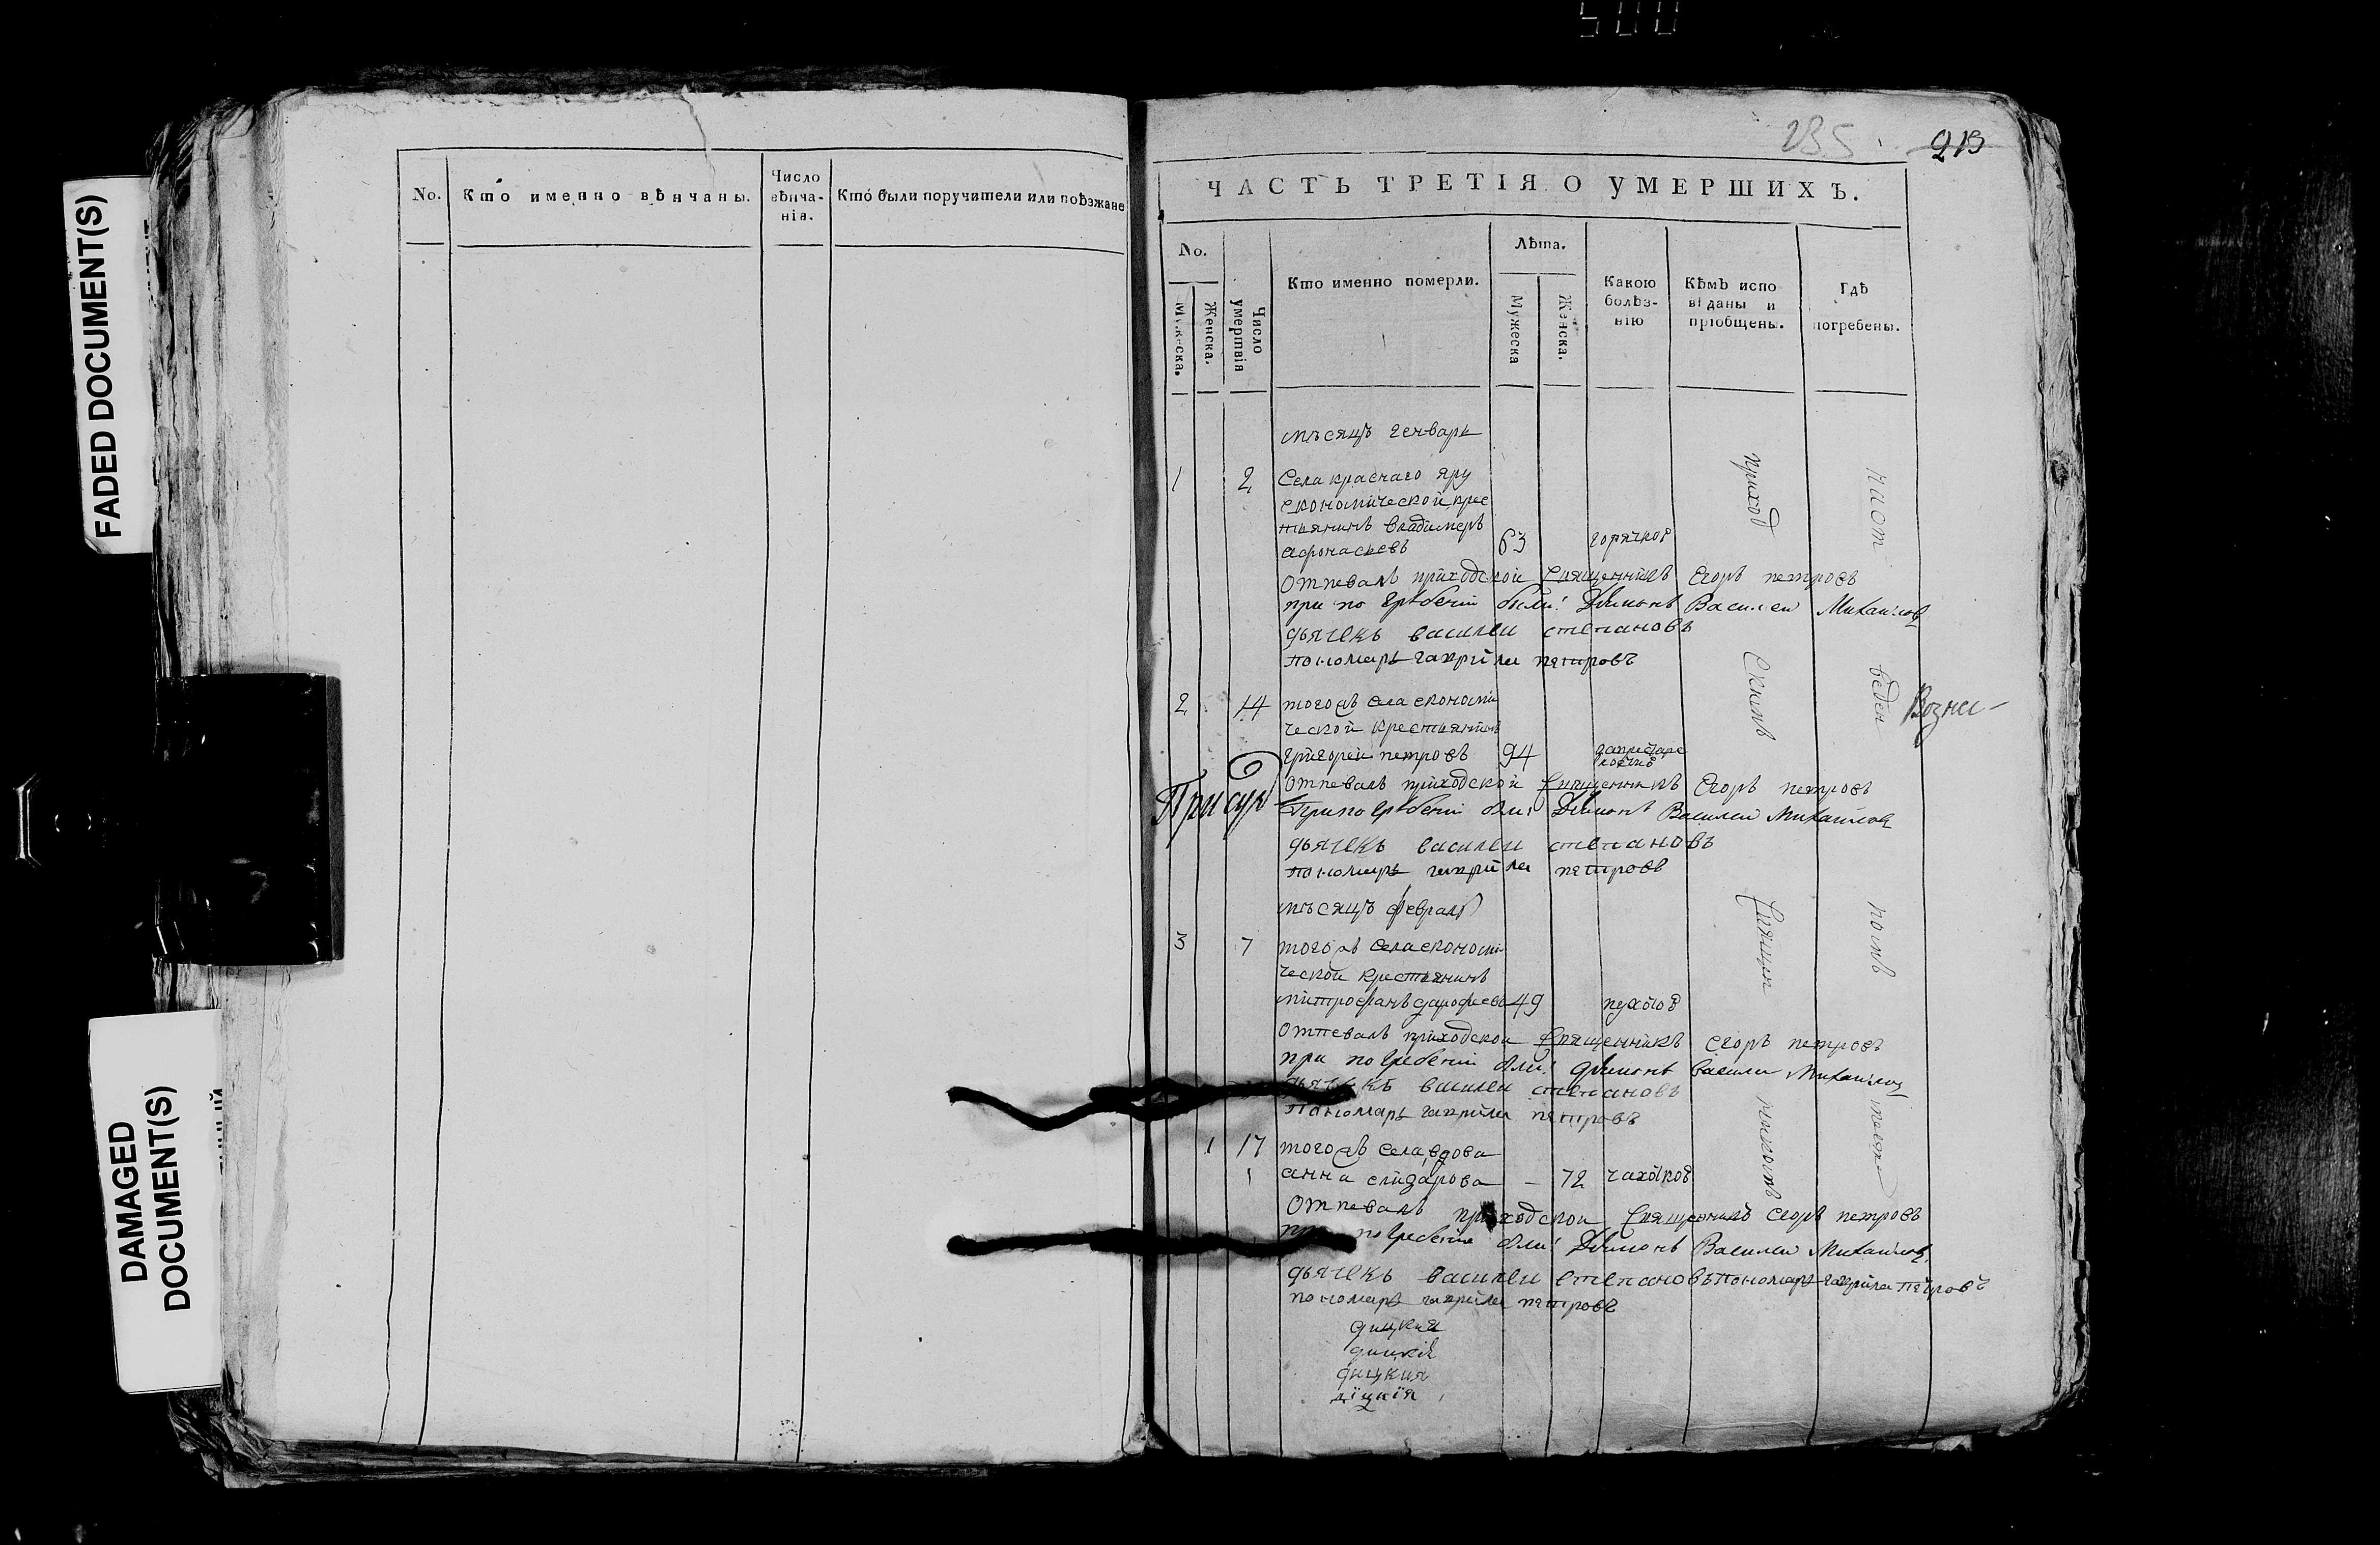 500
FADED DOCUMENT(S)
DAMAGED
DOCUMENT(S)
No.
Кто именно вѣнчаны.
Число
вѣнча-
нія.
Кто были поручители или поѣзжане
235
213
ЧАСТЬ ТРЕТІЯ О УМЕРШИХЪ.
No.
Мужеска.
Женска.
Число
умертвія
Кто именно померли.
Лѣта.
Мужеска
Женска.
Какою
болѣз-
нію
Кѣмъ испо
віданы и
пріобщены.
Гдѣ
погребены.
мѣсяцъ генварь
1 2 Села краснаго яру
економической крес
тьянинъ владимеръ
афонасьевъ 63 горячкой
Отпевалъ приходской священникъ Егоръ петровъ
при погребении были: Диаконъ Василеи Михаиловъ
дьячекъ василеи степановъ
пономарь гаврила петровъ
2 14 тогожъ села економи
ческой крестьянинъ
григореи петровъ 94
Отпевалъ приходской священникъ Егоръ петровъ
При погребении были Диаконъ Василеи Михаиловъ
дьячекъ василеи степановъ
пономарь гаврила петровъ
мѣсяцъ февраль
3 7 тогожъ села економи
ческой крестьянинъ
митрофанъ 49
Отпевалъ приходской священникъ егоръ петровъ
при погребении были: диаконъ василеи Михаиловъ
дьячекъ василеи степановъ
пономарь гаврила петровъ
1 17 тогожъ села вдова
анна елизарова – 72 чахоткой
Отпевалъ приходской священникъ егоръ петровъ
при погребении были: Диаконъ Василеи Михаиловъ
дьячекъ василеи степановъ пономарь гаврила петровъ
пономарь гаврила петровъ
дицкия
дицкия
діцкія
приход
скимъ
священ
никомъ